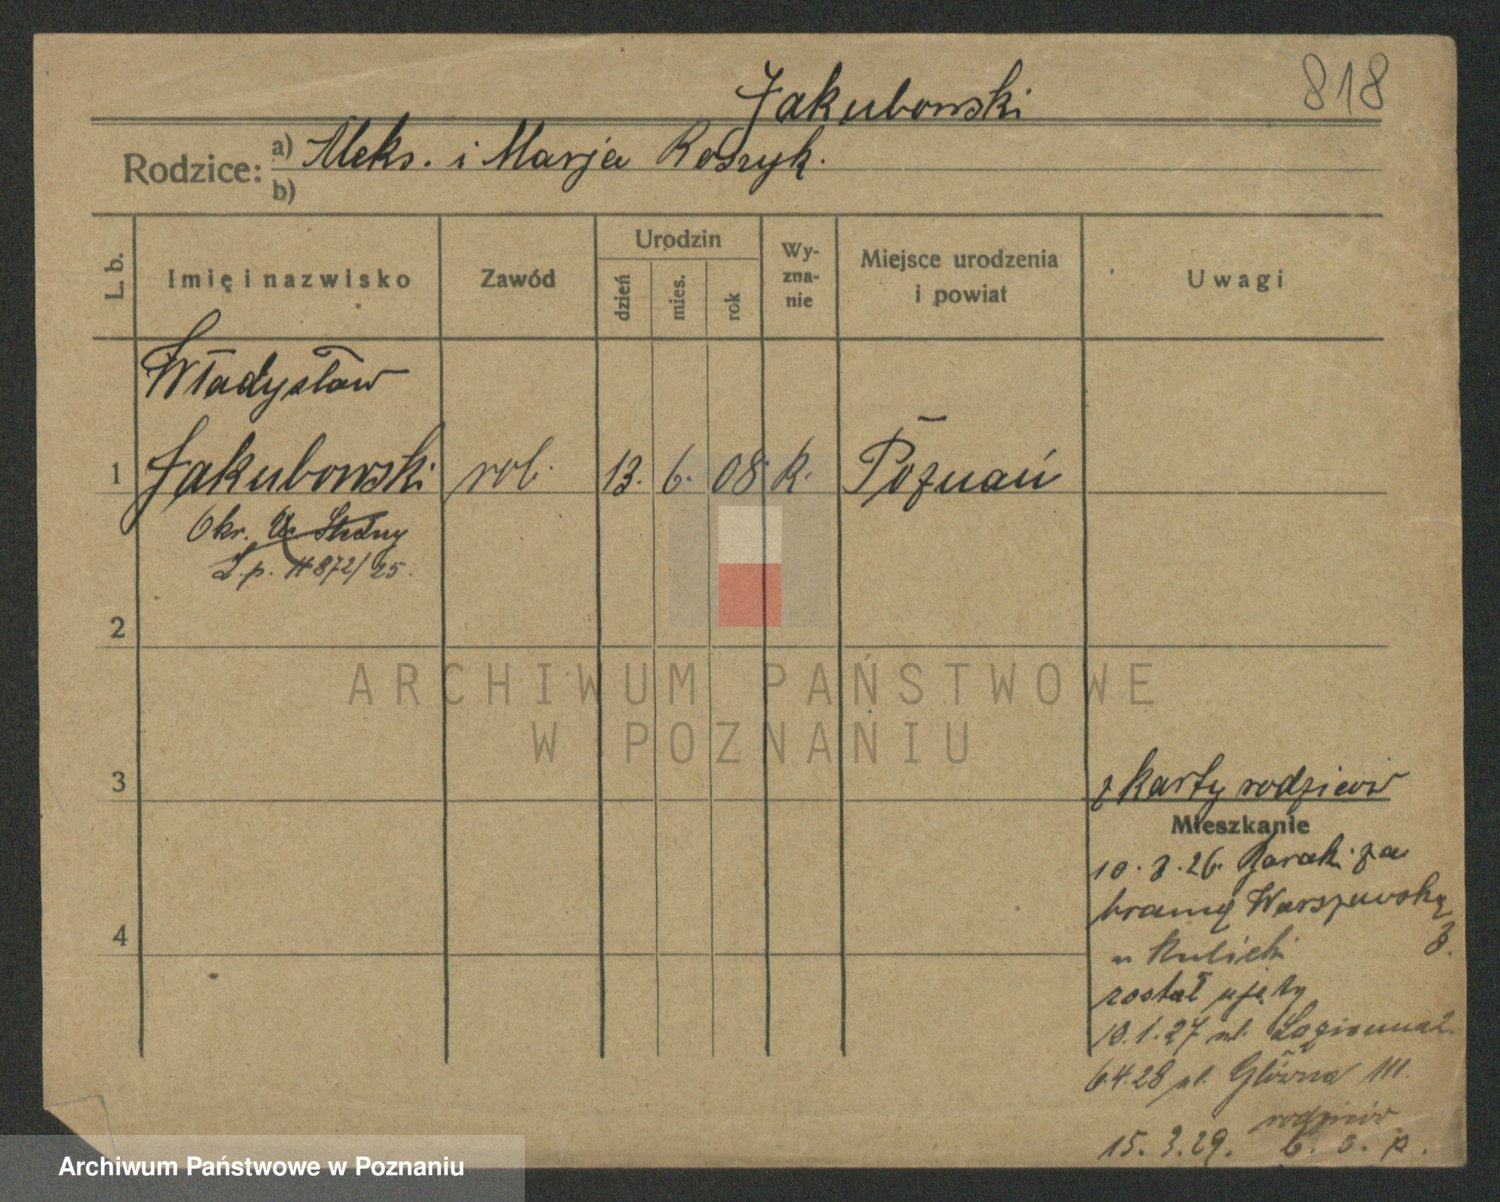 818
Jakubowski
Rodzice: a) Aleks. i Marja Roszyk.
b)
L. b.
Imię i nazwisko
Zawód
Urodzin
dzień
mies.
rok
Wy-
zna-
nie
Miejsce urodzenia
i powiat
Uwagi
Władysław
1 Jakubowski rob. 13. 6. 08. R. Poznań
Okr.
L.p. 872/25.
2
ARCHIWUM PAŃSTWOWE
W POZNANIU
3
z karty rodziców
Mieszkanie
10.3.26. Barak. za
bramą Warszawską
3.
u Kulicki
4
został ujęty
10.1.27 ul. Łagiewna 2.
6.4.28 ul. Główna 111.
rodziców
15.3.29. b. o. p.
Archiwum Państwowe w Poznaniu